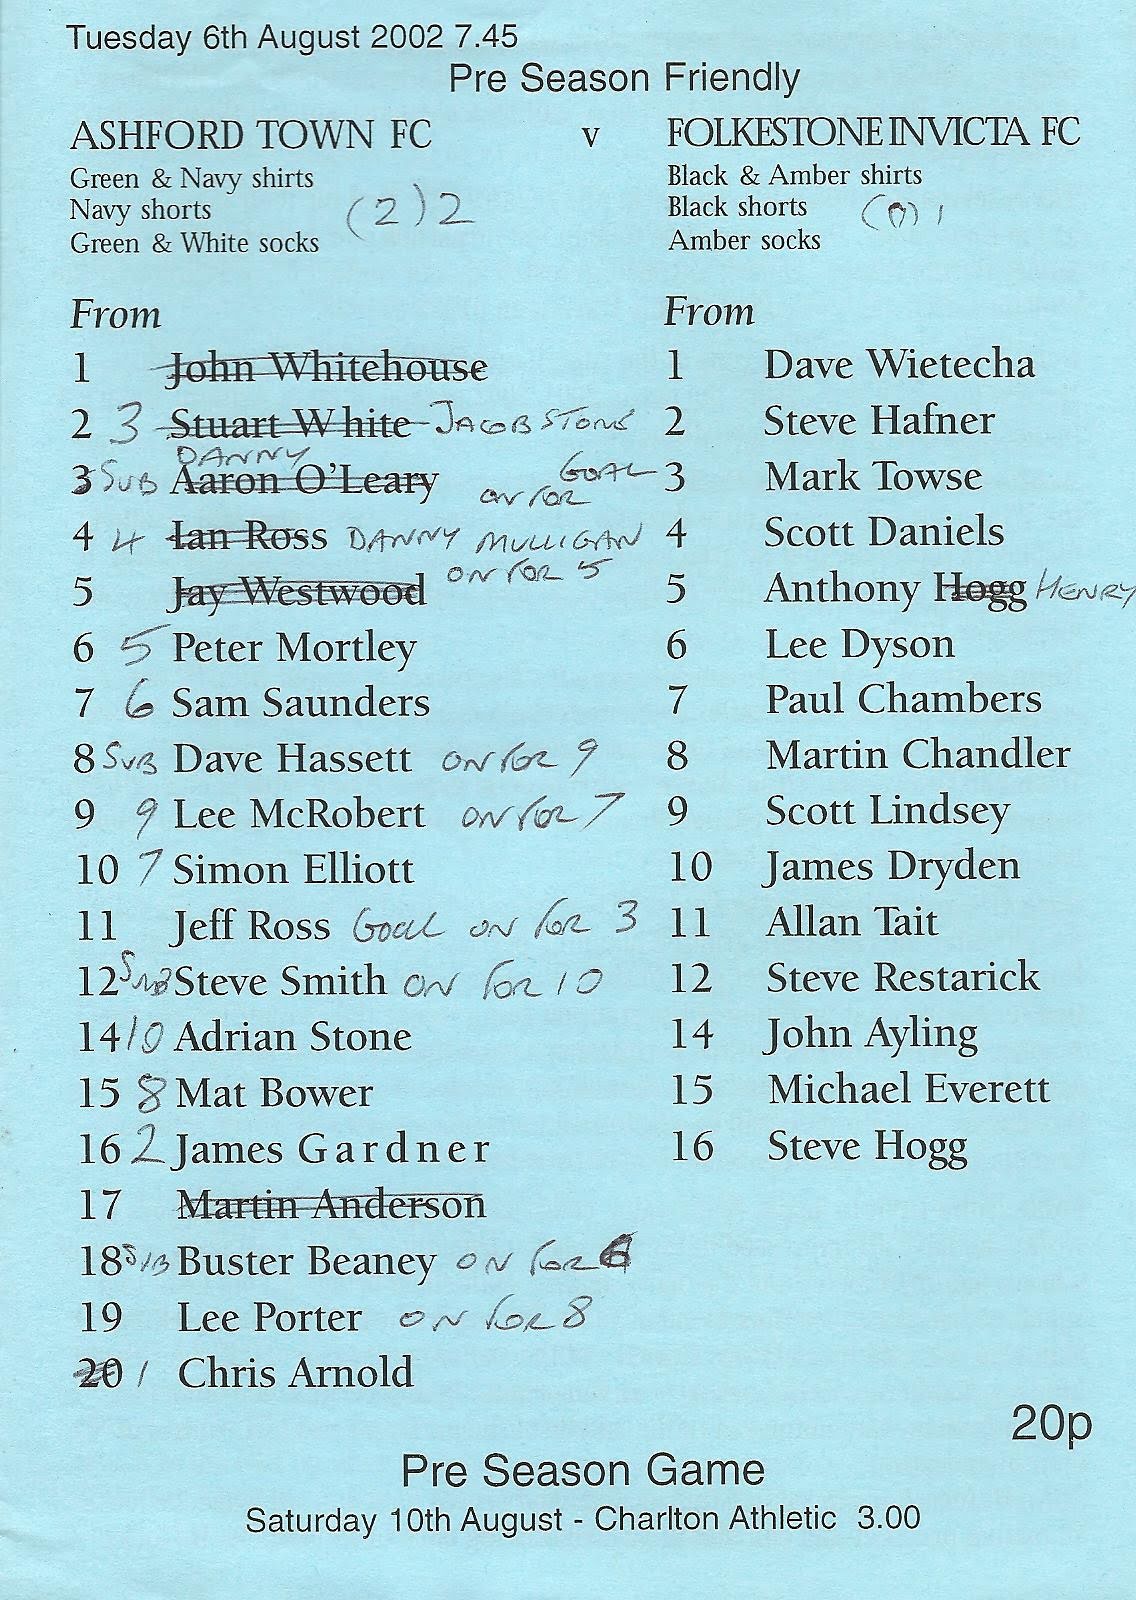 Tuesday 6th August 2002 7.45
Pre Season Friendly
ASHFORD TOWN FC v FOLKESTONE INVICTA FC
Green & Navy shirts
Navy shorts
Green & White socks
(2) 2
Black & Amber shirts
Black shorts
Amber socks
(0) 1
From
1 John Whitehouse
2 3 Stuart White JACOB STONE
DANNY
3 SUB Aaron O'Leary GOAL
ON FOR
4 4 Ian Ross DANNY MULLIGAN
ON FOR 5
5 Jay Westwood
6 5 Peter Mortley
7 6 Sam Saunders
8 SUB Dave Hassett ON FOR 9
9 9 Lee McRobert ON FOR 7
10 7 Simon Elliott
11 Jeff Ross GOAL ON FOR 3
12 SUB Steve Smith ON FOR 10
14 10 Adrian Stone
15 8 Mat Bower
16 2 James Gardner
17 Martin Anderson
18 SUB Buster Beaney ON FOR 6
19 Lee Porter ON FOR 8
20 1 Chris Arnold
From
1 Dave Wietecha
2 Steve Hafner
3 Mark Towse
4 Scott Daniels
5 Anthony Hogg HENRY
6 Lee Dyson
7 Paul Chambers
8 Martin Chandler
9 Scott Lindsey
10 James Dryden
11 Allan Tait
12 Steve Restarick
14 John Ayling
15 Michael Everett
16 Steve Hogg
20p
Pre Season Game
Saturday 10th August - Charlton Athletic 3.00